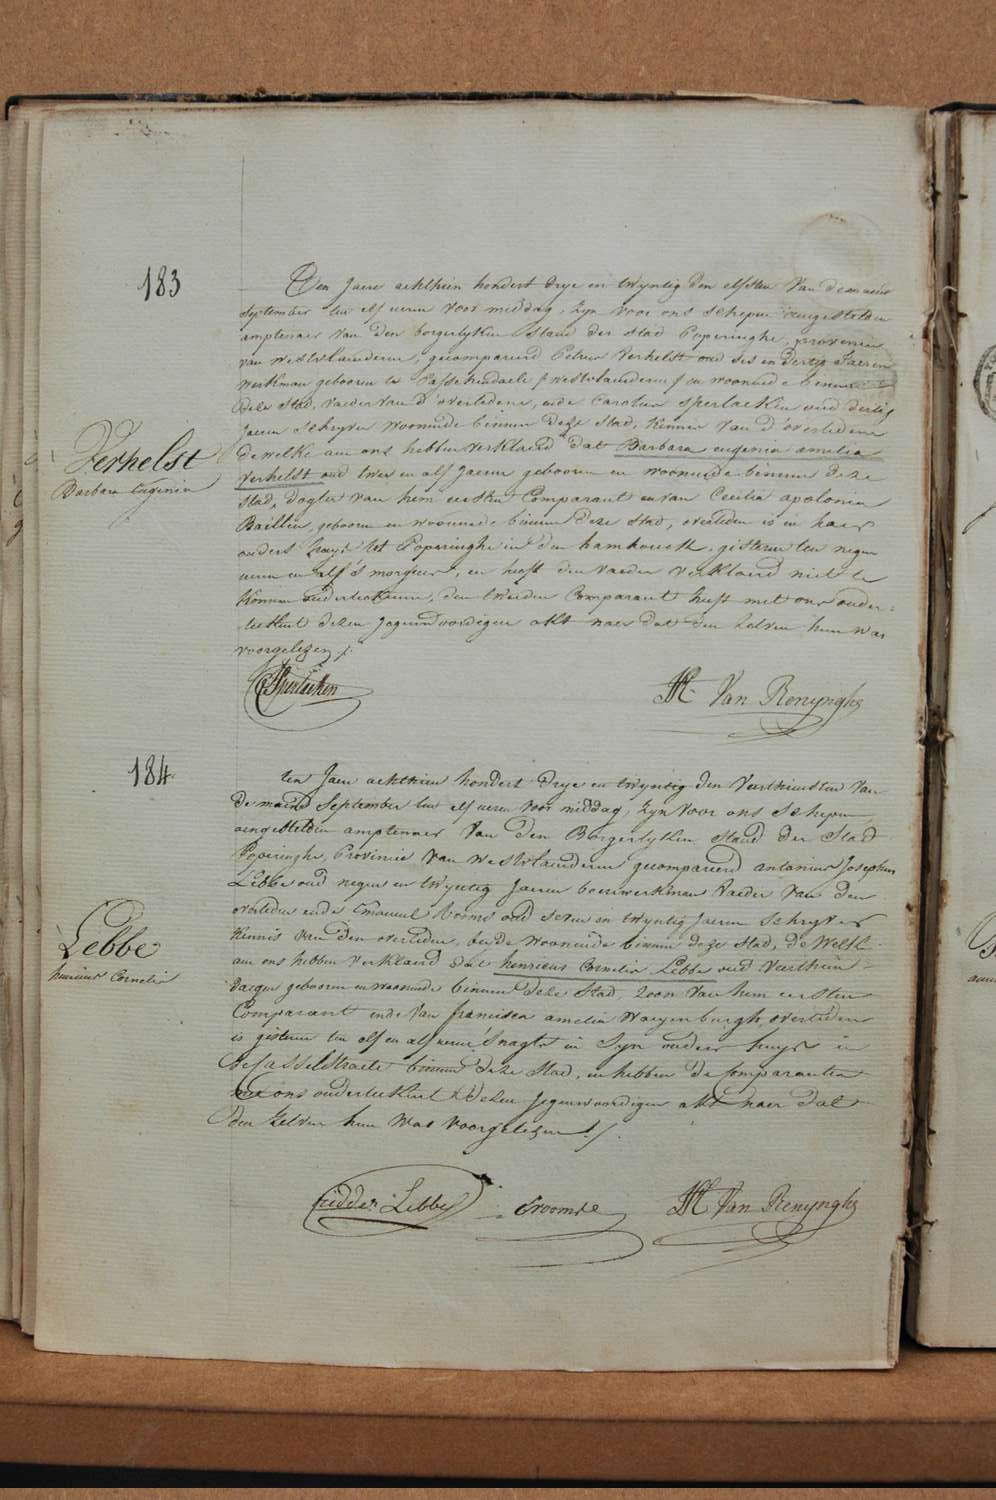 183
Den Jaere achthien hondert drye en twyntig den elfsten van de maend
september ten elf ueren voor middag, zyn voor ons schepen aengestelden
amptenaer van den borgerlyken Stand der Stad Poperinghe, provencie
van Westvlaenderen, gecompareerd Petrus Verhelst oud ses en dertig Jaeren
werkman gebooren te Passchendaele (westvlaenderen) en woonende binnen
deze Stad, vaeder van d'overledene, ende Carolus Sperlaeken oud dertig
Jaeren schryver woonende binnen deze Stad, kennis van d'overledene
dewelke aen ons hebben verklaerd dat Barbara eugenia amelia
Verhelst oud twee en alf Jaeren gebooren en woonende binnen deze
Stad, dogter van hem eersten Comparant en van Cecilia apolonia
Baillieu, gebooren en woonende binnen deze Stad, overleden is in haer
ouders huys tot Poperinghe in den hamhouck, gisteren ten negen
ueren en alf 's morgens, en heeft den vaeder verklaerd niet te
konnen onderteekenen, den tweeden Comparant heeft met ons onder-
teekent dezen jegenwoordigen akt naer dat den zelven hun was
voorgelezen /.
Verhelst
Barbara Eugenia
C Sperlaeken
Van Renynghe
184
ten Jaere achthien hondert drye en twyntig den veerthiensten van
de maend September ten elf ueren voor middag, zyn voor ons schepen
aengestelden amptenaer van den Borgerlyken Stand der Stad
Poperinghe, Provincie van Westvlaenderen, gecompareerd antonius Josephus
Lebbe oud negen en twyntig Jaeren boerwerkman vaeder van den
overleden ende Emanuel Crooms oud seven en twyntig Jaeren schryver
kennis van den overleden, beyde woonende binnen deze Stad, de welke
aen ons hebben verklaerd dat henricus Cornelis Lebbe oud veerthien
daegen gebooren en woonende binnen deze Stad, zoon van hem eersten
Comparant ende van francisca amelia waeyenburgh, overleden
is gisteren ten elf en alf ueren 's nagts in zyn ouders huys in
de Casselstraete binnen deze Stad, en hebben de Comparanten
met ons onderteekent dezen jegenwoordigen akt naer dat
den zelven hun was voorgelezen /.
Lebbe
henricus Cornelis
Lebbe
Van Renynghe